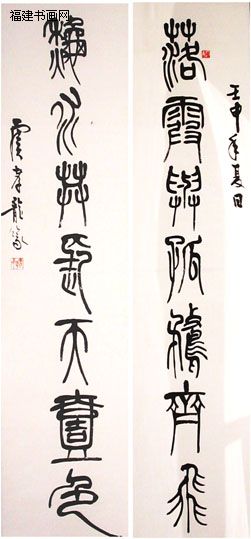 福建书画网
壬申年夏日
落霞與孤鶩齊飛
秋水共長天壹色